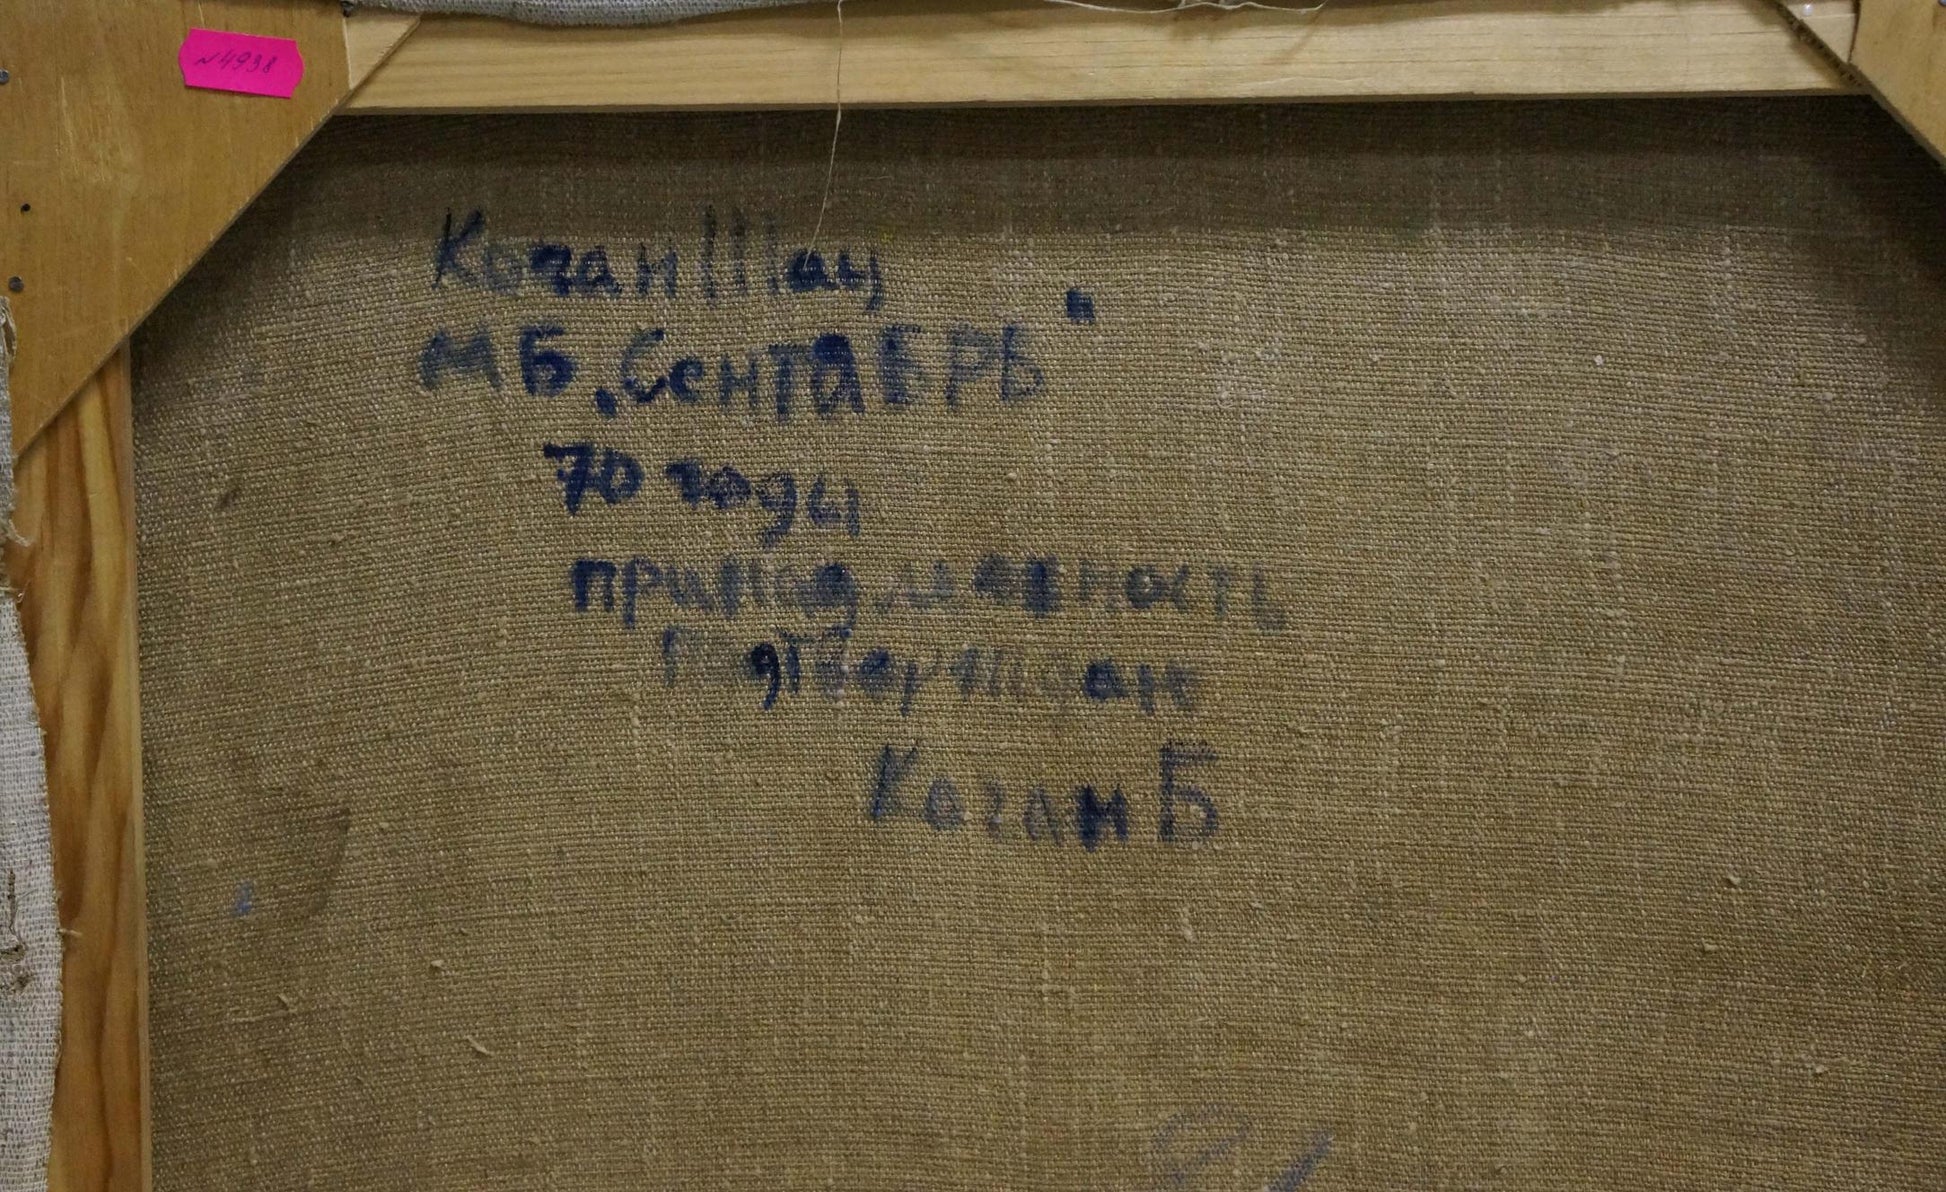 N4938
Коган Шац
МБ „Сентябрь"
70 годы
принадлежность
Подтверждаю
Коган Б